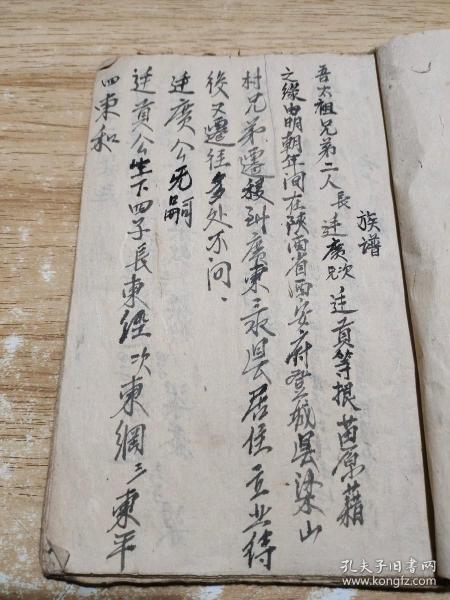 族谱
吾太祖兄弟二人長廷廣兄次廷貢等根苗原籍
之缘由明朝年間在陕西省西安府登城县梁山
村兄弟遷移到廣東三水县居住立业待
後又遷往多处不同、
廷廣公无嗣
廷貢公生下四子長東經次東綱三東平
四東和
孔夫子旧书网
www.kongfz.com